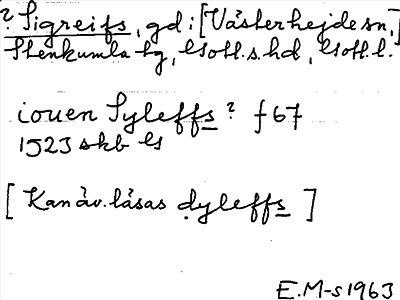 ? Sigreifs, gd: [Västerhejde sn,]
Stenkumla tg, Gotl. s. hd, Gotl. l.
iouen Syleffs? f 67
1523 skb G
[Kan äv. läsas dyleffs]
E.M-s 1963